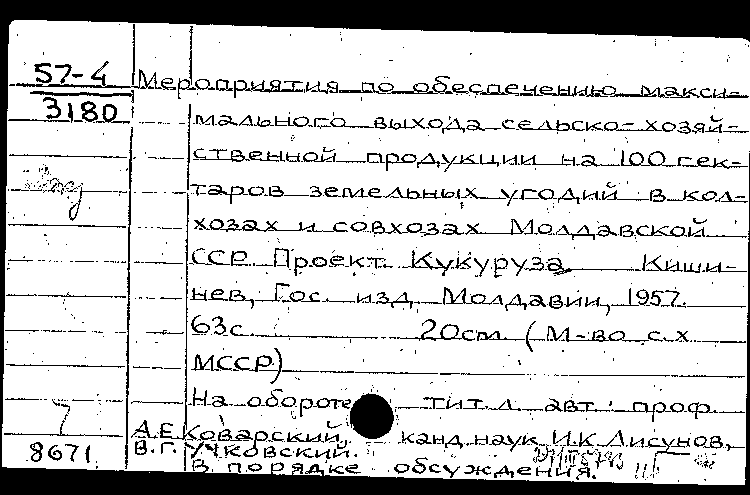 57-4
3180
Мероприятия по обеспечению макси-
мального выхода сельско-хозяй-
ственной продукции на 100 гек-
таров земельных угодий в кол-
хозах и совхозах Молдавской
ССР. Проект. Кукуруза Киши-
нев, Гос. изд. Молдавии, 1957.
63с. 20см. (М-во с.х
МССР)
На обороте тит.л. авт.: проф.
А.Е.Коварский, канд.наук И.К.Лисунов,
В.Г.Учковский.
В порядке обсуждения.
7
8671